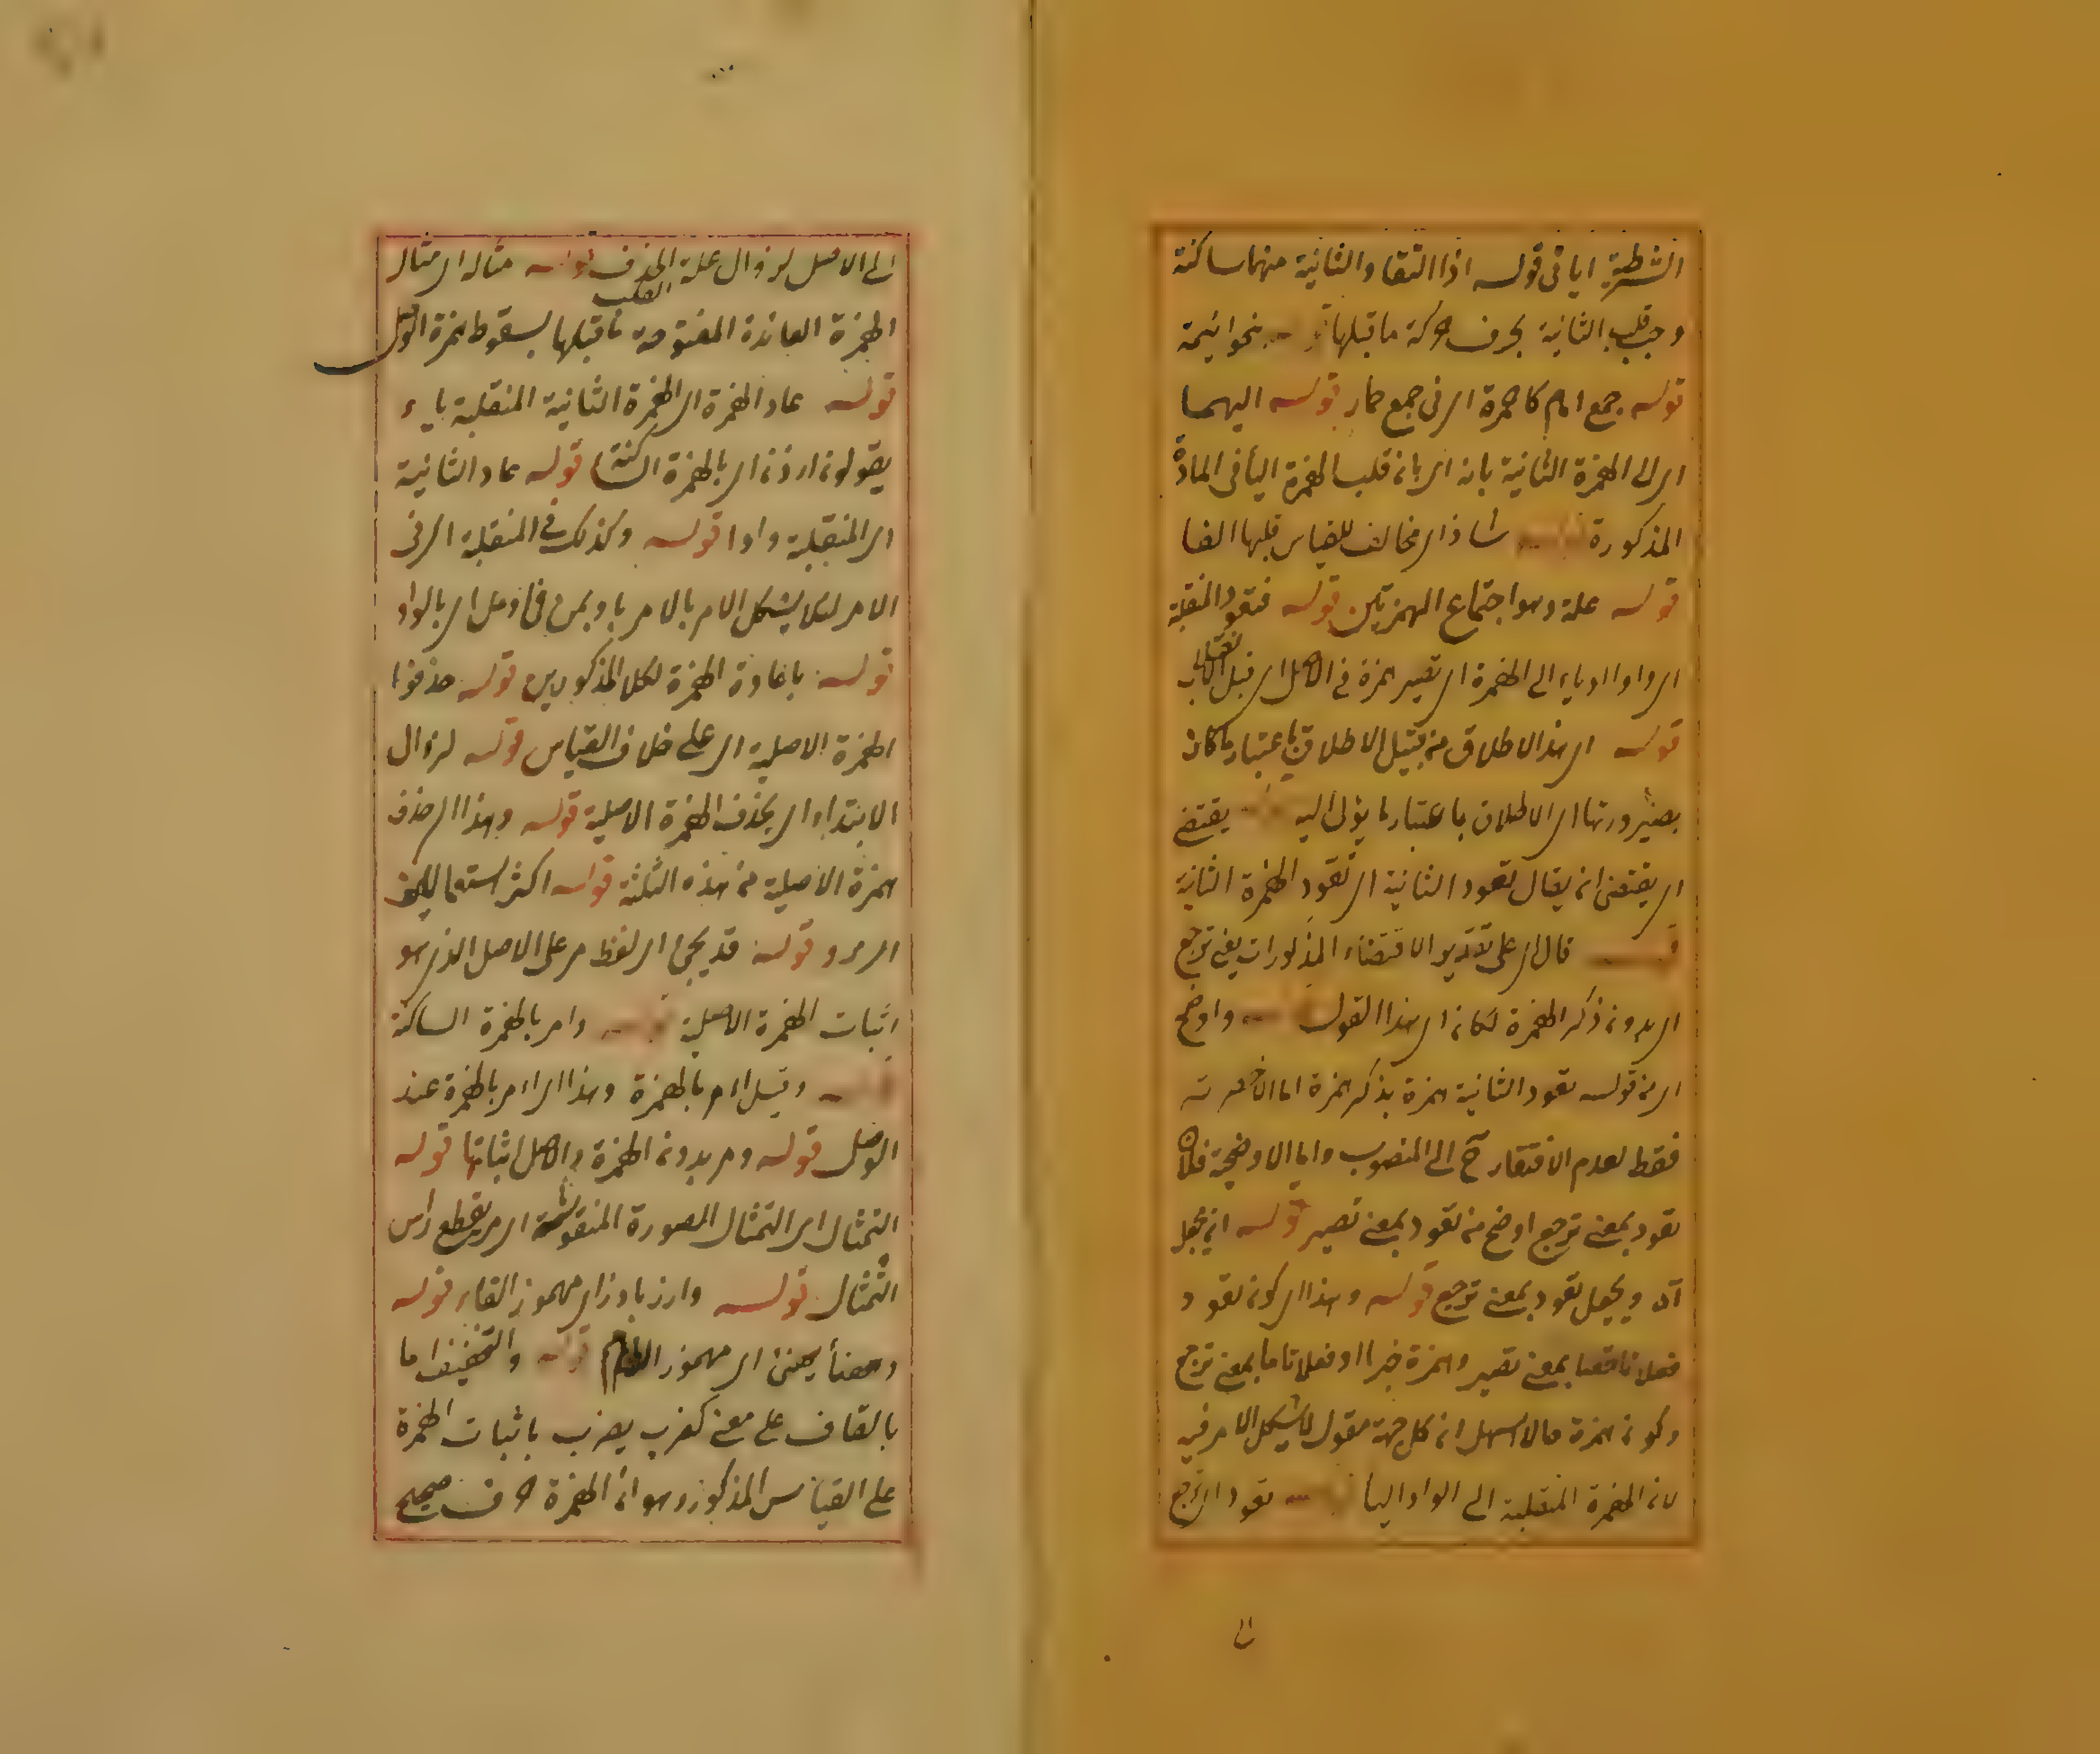 الشرطية اى فى قوله اذا التقا والثانية منهما ساكنة
وجب قلب الثانية بحرف حركة ما قبلها نحو ائيمة
قوله جمع امام كاحمرة اى فى جمع حمار قوله اليهما
اى الى الهمزة الثانية بان اى بان قلب الهمزة الياء فى المادة
المذكورة شاذ اى مخالف للقياس قلبها الفا
قوله علة وهو اجتماع الهمزتين قوله فتعود المنقلبة
اى واوا او ياء الى الهمزة اى تصير همزة فى الاصل اى قبل
قوله اى هذا الاطلاق من قبيل الاطلاق باعتبار ما كان
بصيرورتها اى الاطلاق باعتبار ما يؤل اليه يقتضى
اى يقتضى ان يقال تعود الثانية اى تعود الهمزة الثانية
قال اى على تقدير الاقتضاء المذكورات يعنى ترجع
اى بدون ذكر الهمزة لكان اى هذا القول واوضح
اى من قوله تعود الثانية همزة بذكر همزة اما الاخصرية
فقط لعدم الافتقار ح الى المنصوب واما الاوضحية فلان
تعود بمعنى ترجع اوضح من تعود بمعنى تصير قوله ان يجعل
آه ويجعل تعود بمعنى ترجع قوله وهذا اى كون تعود
فعلا ناقصا بمعنى تصير وهمزة خبرا او فعلا تاما بمعنى ترجع
وكون همزة حالا اسهل ان كل جهة مقول لا يشكل الامر فيه
لان الهمزة المنقلبة الى الواو اليا تعود اى ترجع
الى
الى الاصل لزوال علة الحذف قوله مثال اى مثال
القلب
الهمزة العائدة المفتوحة ما قبلها بسقوط همزة الوصل
قوله عاد الهمزة اى الهمزة الثانية المنقلبة ياء
يقولون ارذن اى بالهمزة الساكنة قوله عاد الثانية
اى المنقلبة واوا قوله وكذلك فى المنقلبة اى فى
الامر لئلا يشكل الامر بالامر باويمن فى اوعل اى بالواو
قوله باعادة الهمزة لكل المذكورين قوله حذفوا
الهمزة الاصلية اى على خلاف القياس قوله لزوال
الابتداء اى بحذف الهمزة الاصلية قوله وهذا اى حذف
همزة الاصلية من هذه الثلثة قوله اكثر استعمالا
اى مر و قوله قد يجئ اى لفظ مر على الاصل الذى هو
اثبات الهمزة الاصلية وامر بالهمزة الساكنة
وقيل اءمر بالهمزة وهذا اى اءمر بالهمزة عند
الوصل قوله ومر بدون الهمزة والاصل اثباتها قوله
التمثال اى التمثال الصورة المنقوشة اى مر يقطع رأس
التمثال قوله وارز يارز اى مهموز الفاء قوله
وهنأ يهنئ اى مهموز اللام قوله والتخفيف ما
بالقاف على معنى كضرب يضرب باثبات الهمزة
على القياس المذكور وهو ان الهمزة حرف صحيح